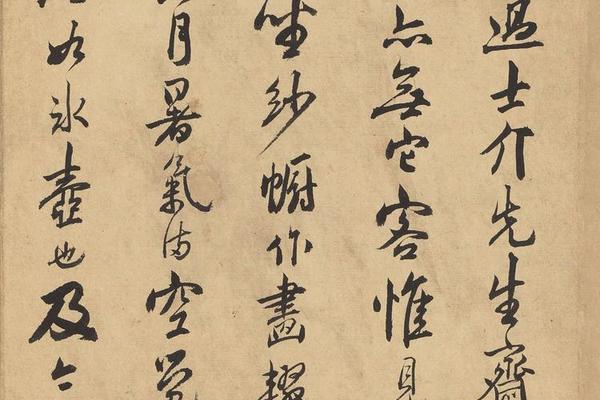 過士介先生齋
亦無它客惟見
坐紗幮作畫輟
月暑氣滿空覺
如冰壺也及今